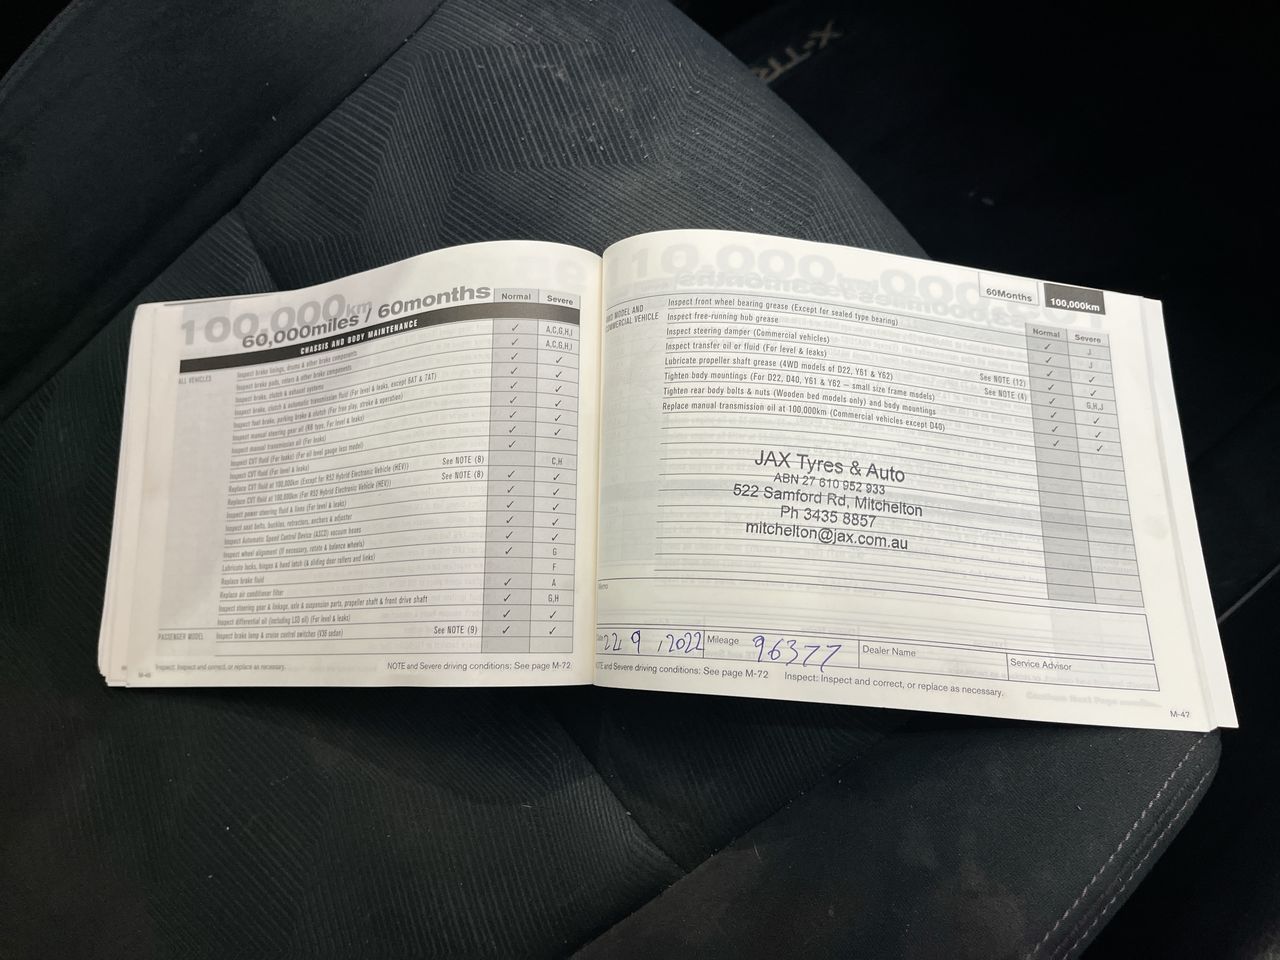 X-TR
100,000km
60,000miles / 60months
Normal
Severe
CHASSIS AND BODY MAINTENANCE
ALL VEHICLES
Inspect brake linings, drums & other brake components ✓ A,C,G,H,I
Inspect brake pads, rotors & other brake components ✓ A,C,G,H,I
Inspect brake, clutch & exhaust systems ✓ ✓
Inspect brake, clutch & automatic transmission fluid (For level & leaks, except 6AT & 7AT) ✓ ✓
Inspect foot brake, parking brake & clutch (For free play, stroke & operation) ✓ ✓
Inspect manual steering gear oil (RB type, For level & leaks) ✓ ✓
Inspect manual transmission oil (For leaks) ✓ ✓
Inspect CVT fluid (For leaks) (For oil level gauge less model) ✓ ✓
Inspect CVT fluid (For level & leaks) ✓
Replace CVT fluid at 100,000km (Except for R52 Hybrid Electronic Vehicle (HEV)) See NOTE (8) C,H
Replace CVT fluid at 100,000km (For R52 Hybrid Electronic Vehicle (HEV)) See NOTE (8) ✓ ✓
Inspect power steering fluid & lines (For level & leaks) ✓ ✓
Inspect seat belts, buckles, retractors, anchors & adjuster ✓ ✓
Inspect Automatic Speed Control Device (ASCD) vacuum hoses ✓ ✓
Inspect wheel alignment (If necessary, rotate & balance wheels) ✓ ✓
Lubricate locks, hinges & hood latch (& sliding door rollers and links) ✓ G
Replace brake fluid F
Replace air conditioner filter ✓ A
Inspect steering gear & linkage, axle & suspension parts, propeller shaft & front drive shaft ✓ G,H
Inspect differential oil (including LSD oil) (For level & leaks) ✓ ✓
PASSENGER MODEL Inspect brake lamp & cruise control switches (V36 sedan) See NOTE (9) ✓ ✓
Inspect: Inspect and correct, or replace as necessary.
NOTE and Severe driving conditions: See page M-72
60Months
100,000km
Normal
Severe
MODEL AND
COMMERCIAL VEHICLE
Inspect front wheel bearing grease (Except for sealed type bearing) ✓ J
Inspect free-running hub grease ✓ J
Inspect steering damper (Commercial vehicles) ✓ ✓
Inspect transfer oil or fluid (For level & leaks) ✓ ✓
Lubricate propeller shaft grease (4WD models of D22, Y61 & Y62) See NOTE (12) ✓ G,H,J
Tighten body mountings (For D22, D40, Y61 & Y62 – small size frame models) See NOTE (4) ✓ ✓
Tighten rear body bolts & nuts (Wooden bed models only) and body mountings ✓ ✓
Replace manual transmission oil at 100,000km (Commercial vehicles except D40) ✓ ✓
JAX Tyres & Auto
ABN 27 610 952 933
522 Samford Rd, Mitchelton
Ph 3435 8857
mitchelton@jax.com.au
Memo
Date 22/9/2022 Mileage 96377 Dealer Name Service Advisor
NOTE and Severe driving conditions: See page M-72 Inspect: Inspect and correct, or replace as necessary.
M-47